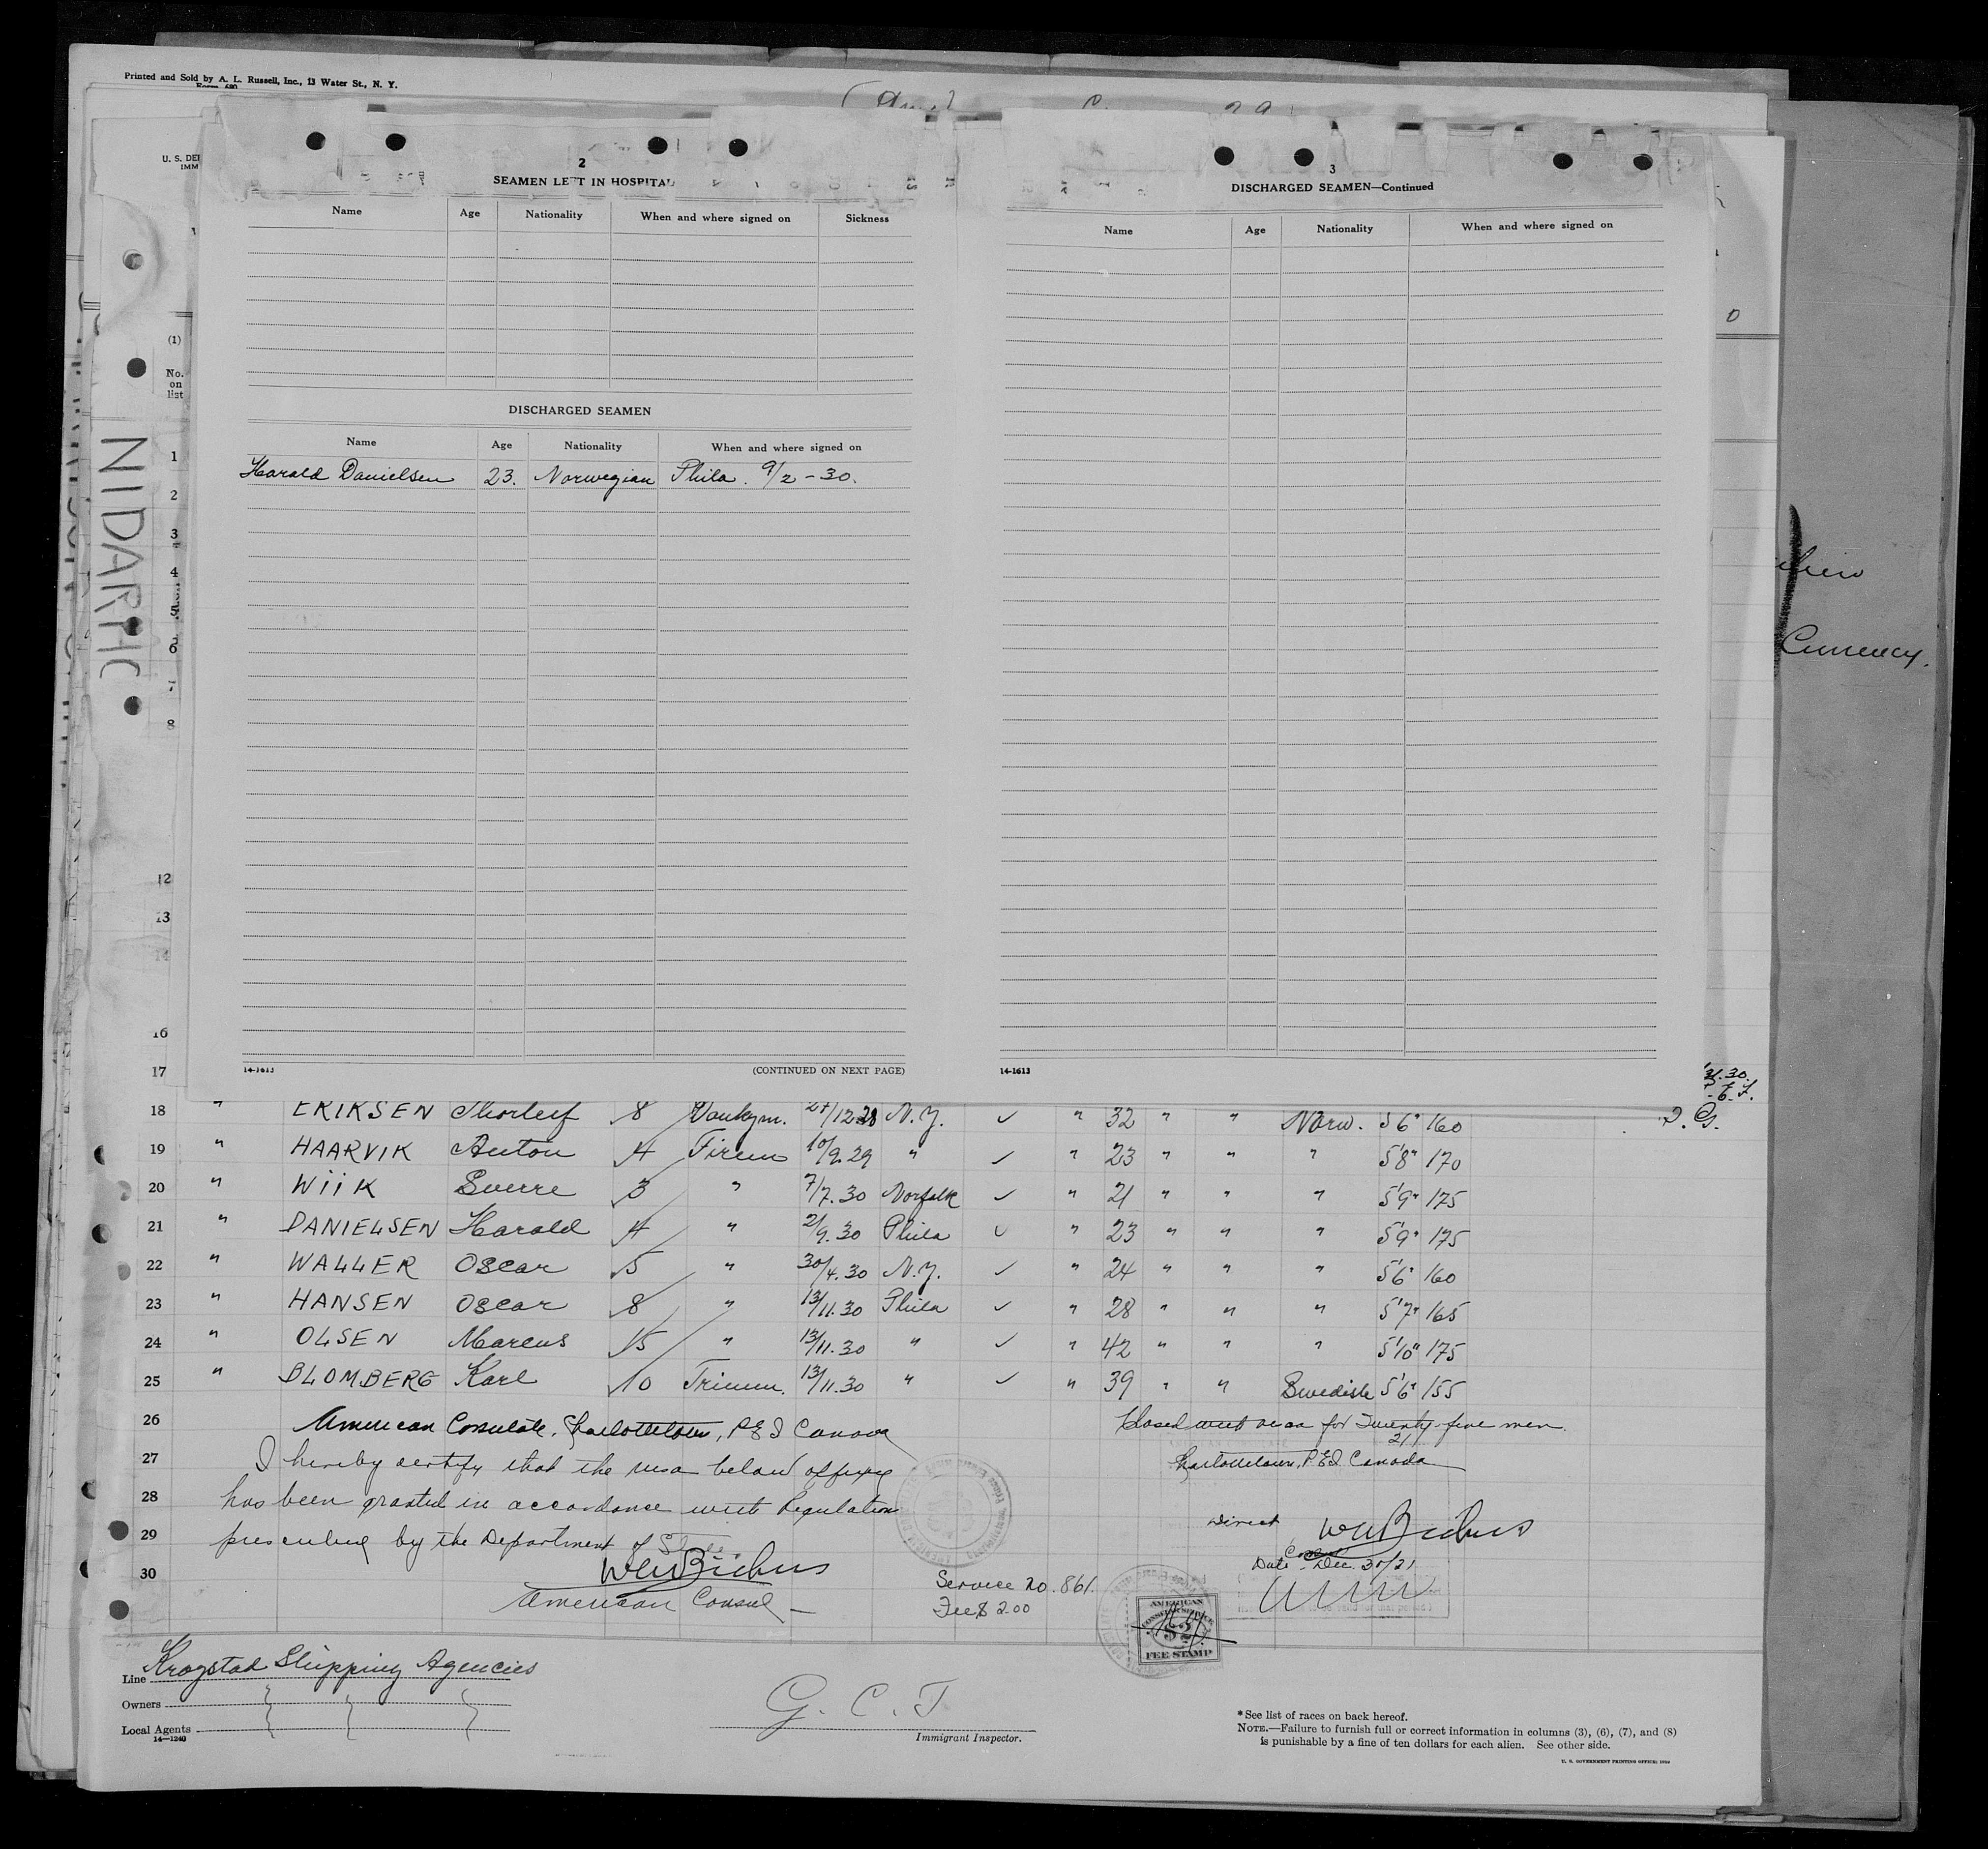 Printed and Sold by A. L. Russell, Inc., 13 Water St., N. Y.
Form 680
U. S. DEP
IMM
(1)
No.
on
list
NIDARHC
2
SEAMEN LEFT IN HOSPITAL
Name Age Nationality When and where signed on Sickness
DISCHARGED SEAMEN
Name Age Nationality When and where signed on
Harald Danielsen 23. Norwegian Phila. 9/2 - 30.
14-1613 (CONTINUED ON NEXT PAGE)
3
DISCHARGED SEAMEN—Continued
Name Age Nationality When and where signed on
14-1613
Currency.
1
2
3
4
5
6
7
8
12
13
14
16
17
18 " ERIKSEN Thorleif 8 Donkym. 27/12.28 N.Y. ✓ " 32 " " Norw. 5'6" 160
19 " HAARVIK Anton 4 Firem 10/9.29 " ✓ " 23 " " " 5'8" 170
20 " WiiK Sverre 3 " 7/7.30 Norfolk ✓ " 21 " " " 5'9" 175
21 " DANIELSEN Harald 4 " 2/9.30 Phila ✓ " 23 " " " 5'9" 175
22 " WALLER Oscar 5 " 30/4.30 N.Y. ✓ " 24 " " " 5'6" 160
23 " HANSEN Oscar 8 " 13/11.30 Phila ✓ " 28 " " " 5'7" 165
24 " OLSEN Marcus 15 " 13/11.30 " ✓ " 42 " " " 5'10" 175
25 " BLOMBERG Karl 10 Trimm. 13/11.30 " ✓ " 39 " " Swedish 5'6" 155
26 American Consulate, Charlottetown, P E I Canada
Closed with visa for Twenty five men
27 I hereby certify that the visa below affixed
Charlottetown, P E I Canada
28 has been granted in accordance with Regulation
29 prescribed by the Department of State.
Direct
30
American Consul
Consul
Date Dec. 31/21
Service no. 861.
Fee $ 2.00
AMERICAN
CONSULAR SERVICE
$2
FEE STAMP
Line Krogstad Shipping Agencies
Owners
Local Agents
14—1240
G. C. T.
Immigrant Inspector.
*See list of races on back hereof.
NOTE.—Failure to furnish full or correct information in columns (3), (6), (7), and (8)
is punishable by a fine of ten dollars for each alien. See other side.